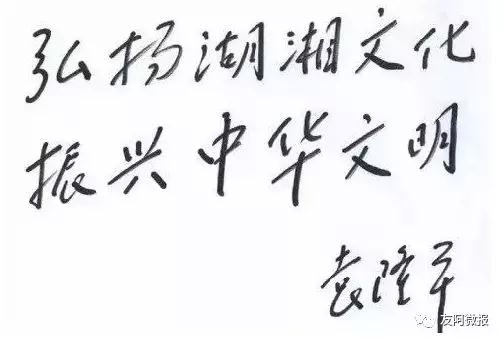 弘扬湖湘文化
振兴中华文明
袁隆平
友阿微报